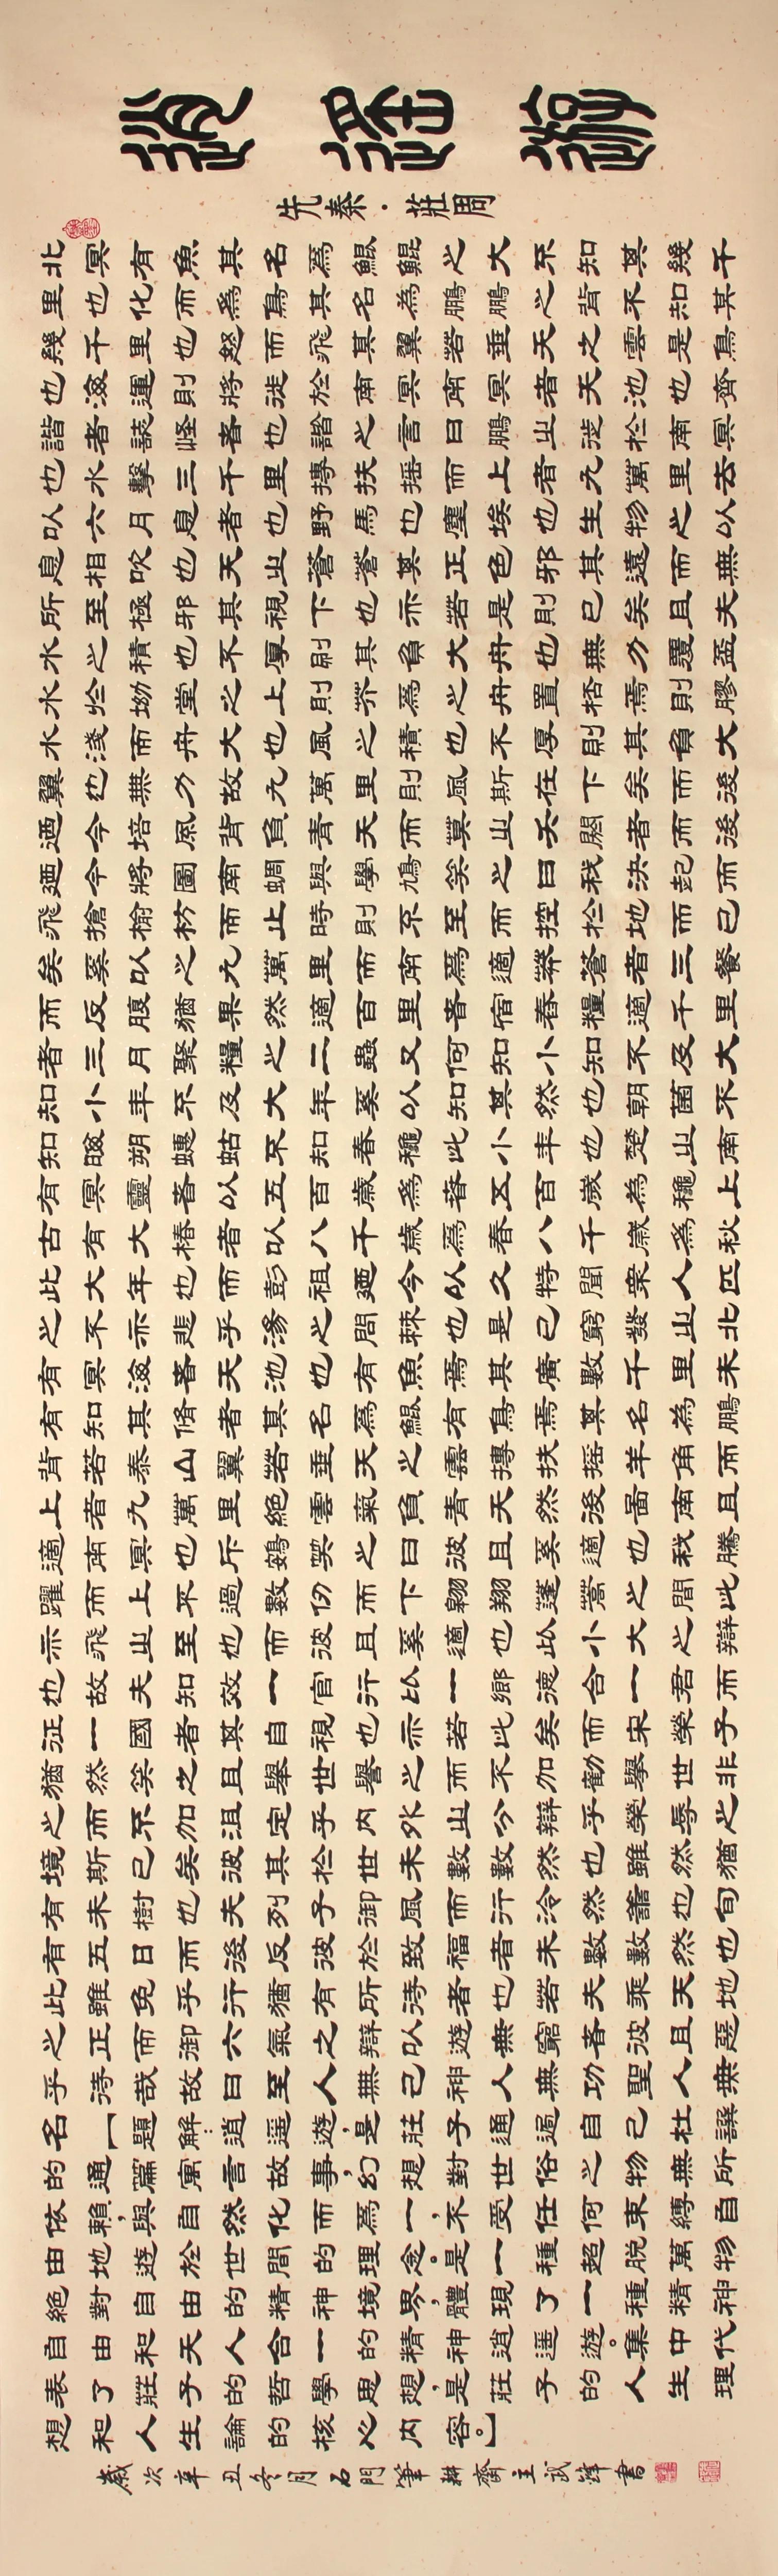 逍遙遊
先秦·莊周
北冥有魚其名為鯤鯤之大不知其幾千
里也化而為鳥其名為鵬鵬之背不知其
幾千里也怒而飛其翼若垂天之雲是鳥
也海運則將徙於南冥南冥者天池也齊
諧者志怪者也諧之言曰鵬之徙於南冥
也水擊三千里摶扶搖而上者九萬里去
以六月息者也野馬也塵埃也生物之以
息相吹也天之蒼蒼其正色邪其遠而無
所至極邪其視下也亦若是則已矣且夫
水之積也不厚則其負大舟也無力覆盃
水於坳堂之上則芥為之舟置桮焉則膠
水淺而舟大也風之積也不厚則其負大
翼也無力故九萬里則風斯在下矣而後
迺今培風背負青天而莫之夭閼者而後
迺今將圖南蜩與學鳩笑之曰我決起而
飛搶榆枋而止時則不至而控於地而已
矣奚以之九萬里而南為適莽蒼者三餐
而反腹猶果然適百里者宿舂糧適千里
者三月聚糧之二蟲又何知小知不及大
知小年不及大年奚以知其然也朝菌不
知晦朔蟪蛄不知春秋此小年也楚之南
有冥靈者以五百歲為春五百歲為秋上
古有大椿者以八千歲為春八千歲為秋
此大年也而彭祖乃今以久特聞衆人匹
之不亦悲乎湯之問棘也是已窮發之北
有冥海者天池也有魚焉其廣數千里未
有知其脩者其名為鯤有鳥焉其名為鵬
背若泰山翼若垂天之雲摶扶搖羊角而
上者九萬里絕雲氣負青天然後圖南且
適南冥也斥鴳笑之曰彼且奚適也我騰
躍而上不過數仞而下翱翔蓬蒿之間此
亦飛之至也而彼且奚適也此小大之辯
也故夫知效一官行比一鄉德合一君而
征一國者其自視也亦若此矣而宋榮子
猶然笑之且舉世譽之而不加勸舉世非
之而不加沮定乎內外之分辯乎榮辱之
境斯已矣彼其於世未數數然也雖然猶
有未樹也夫列子御風而行泠然善也旬
有五日而後反彼於致福者未數數然也
此雖免乎行猶有所待者也若夫乘天地
之正而御六氣之辯以遊無窮者彼且惡
乎待哉故曰至人無己神人無功聖人無
名「題解:逍遙遊是莊子通過自己杜譔
的通篇寓言故事,幻想對世俗之物無所
依賴,與自然化而為一,不受任何束縛自
由地遊於世間的理念。是一種超脫萬物
絕對自由的精神境界,體現了一種精神
自由和天人合一的精神。逍遙遊集中代
表了莊子的哲學思想,是莊子的人生理
想和人生論的核心內容。」
歲次辛丑冬月石門筆耕齋主武鋒書